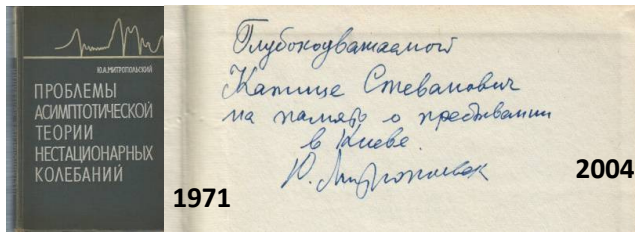 Ю.А.МИТРОПОЛЬСКИЙ
ПРОБЛЕМЫ
АСИМПТОТИЧЕСКОЙ
ТЕОРИИ
НЕСТАЦИОНАРНЫХ
КОЛЕБАНИЙ
1971
Глубокоуважаемой
Катице Стевановић
на память о пребывании
в Киеве.
Ю. Митропольск
2004